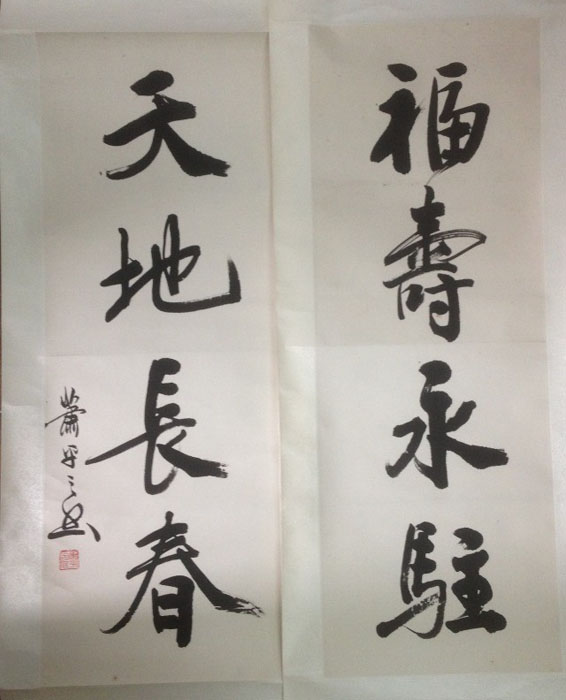 福壽永駐
天地長春
蕭平